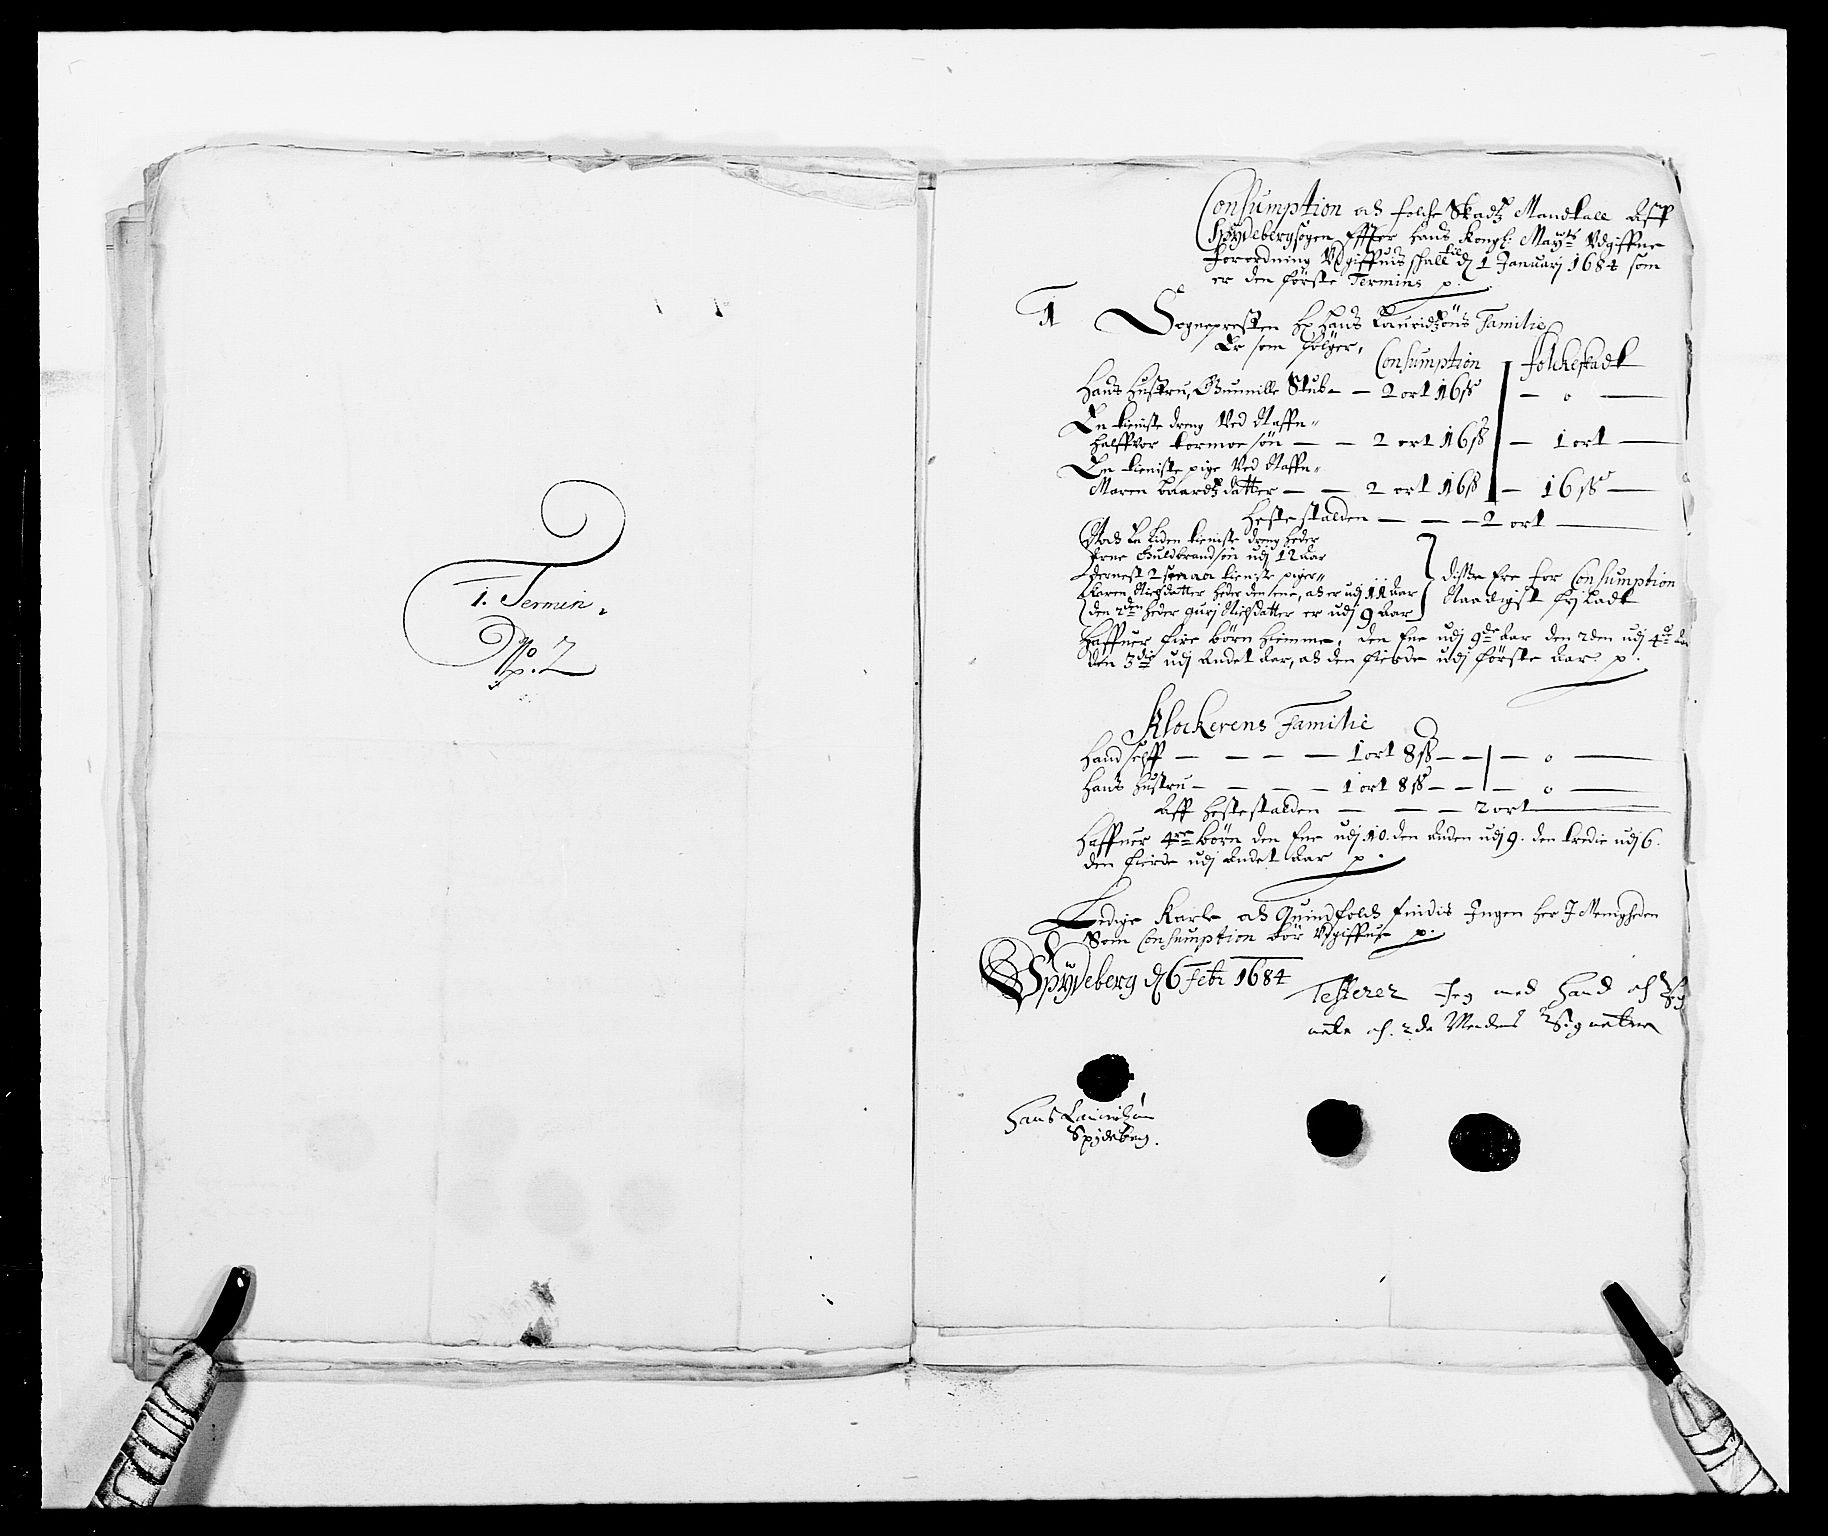 1. Termin.
No. 2
Consumption och folche Skadtz Mandtall Aff
Spydebergsogen Effter Hans Kongl: Mayts Udgiffne
Forordning Udgiffvis shall til d 1 Januarj 1684 som
er den første Termins p.
1 Sognepresten Hr Hans Lauridzøns Familie
Er som følger,
Consumption Folckeskadt
Hans Hustru, Gunnille Stub — 2 ort 16 ß — 0 —
En tieniste dreng Ved Naffn
Halffvor tormoesøn — — 2 ort 16 ß — 1 ort —
En tieniste pige Ved Naffn
Maren baardtzdatter — — 2 ort 16 ß — 16 ß —
Hestestalden — — — 2 ort —
Noch En liden tieniste dreng heder
Arne Guldbrandsøn udj 12 Aar
dernest 2 smaa tieniste piger
Karen Nielsdatter heder den ene, och er udj 11 Aar
den 2den heder gurj Nielsdatter er udj 9 Aar
disse Ere for Consumption
Naadigst frj ladt
Haffuer fire børn hiemme, den Ene udj 9de Aar den 2den udj 4de Aar
den 3die udj Andet Aar, och den fierde udj første Aar p.
Klockerens Familie
Hand selff — — — — 1 ort 8 ß — — — 0 —
Hans Hustru — — — — 1 ort 8 ß — — — 0 —
Aff Hestestalden — — — 2 ort —
Haffuer 4re børn den Ene udj 10. den anden udj 9. den tredie udj 6.
den fierde udj andet Aar p.
Ledige Karle och Quindfolch findis Ingen her I Menigheden
Som Consumption bør Udgiffue p.
Spydeberg d 6 Febr 1684
Testerer Jeg med Hand och Sig
nete och 2de Mends Signeter
Hans Lauridzøn
Spydeberg.